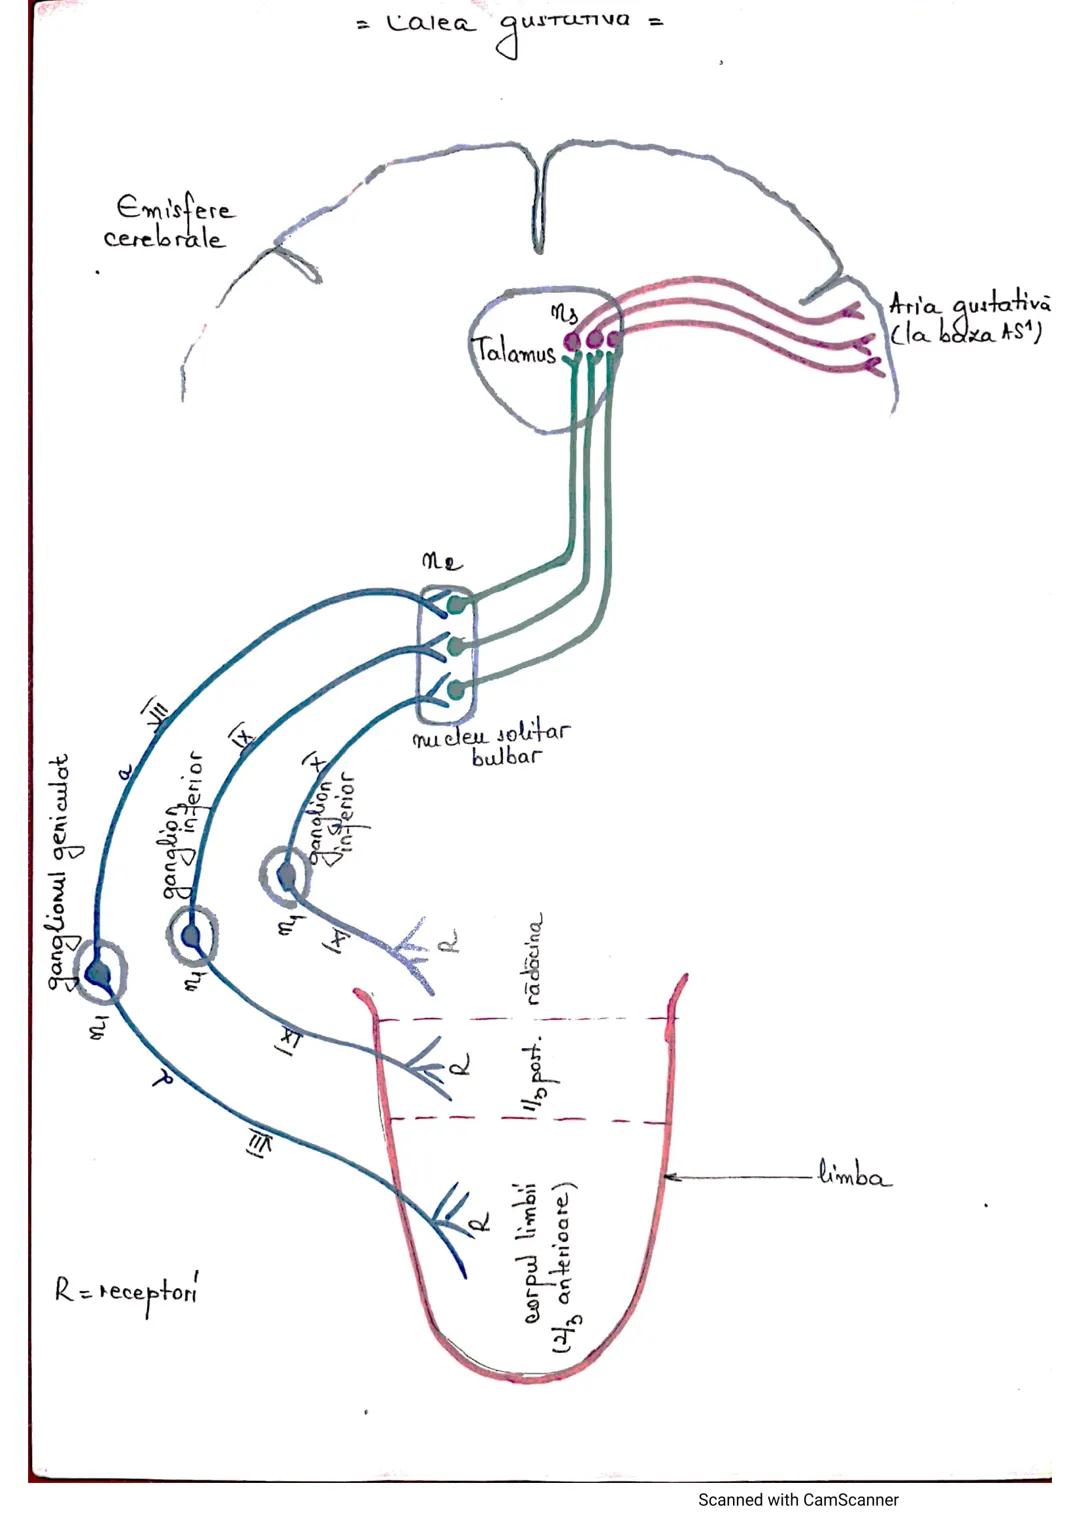 = Calea gustativa =
Emisfere
cerebrale
n3
Talamus
Aria gustativă
(la baza AS1)
n2
nucleu solitar
bulbar
VII
a
IX
X
ganglionul geniculat
ganglion
inferior
ganglion
inferior
n1
n1
n1
IX
R
IX
R
d
VII
R
rădăcina
1/3 post.
corpul limbii
(2/3 anterioare)
limba
R = receptori
Scanned with CamScanner